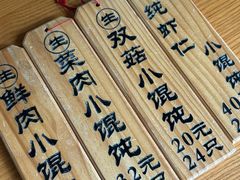 生
鲜肉小馄
生
荠肉小馄饨
生
双菇小馄饨
20元
24只
纯虾仁
小馄饨
40